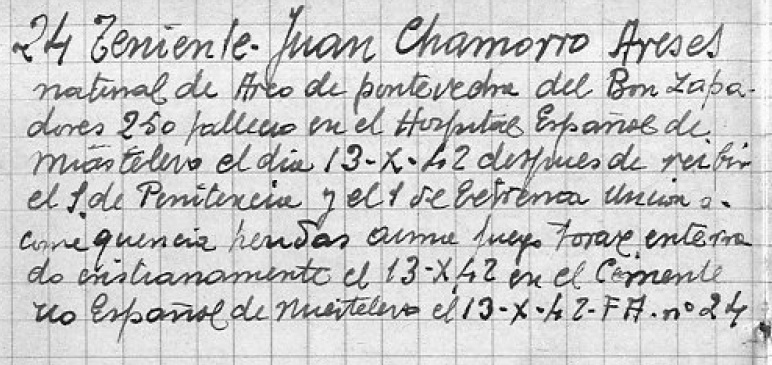 24 Teniente. Juan Chamorro Areses
natural de Arco de pontevedra del Bon Zapa-
dores 250 fallecio en el Hospital Español de
Miastelevo el dia 13-X-42 despues de recibir
el S. de Penitencia y el S de Extrema Uncion a.
consequencia heridas arma fuego Torax enterra
do cristianamente el 13-X-42 en el Cemente
rio Español de Miastelevo el 13-X-42-F A. nº 24